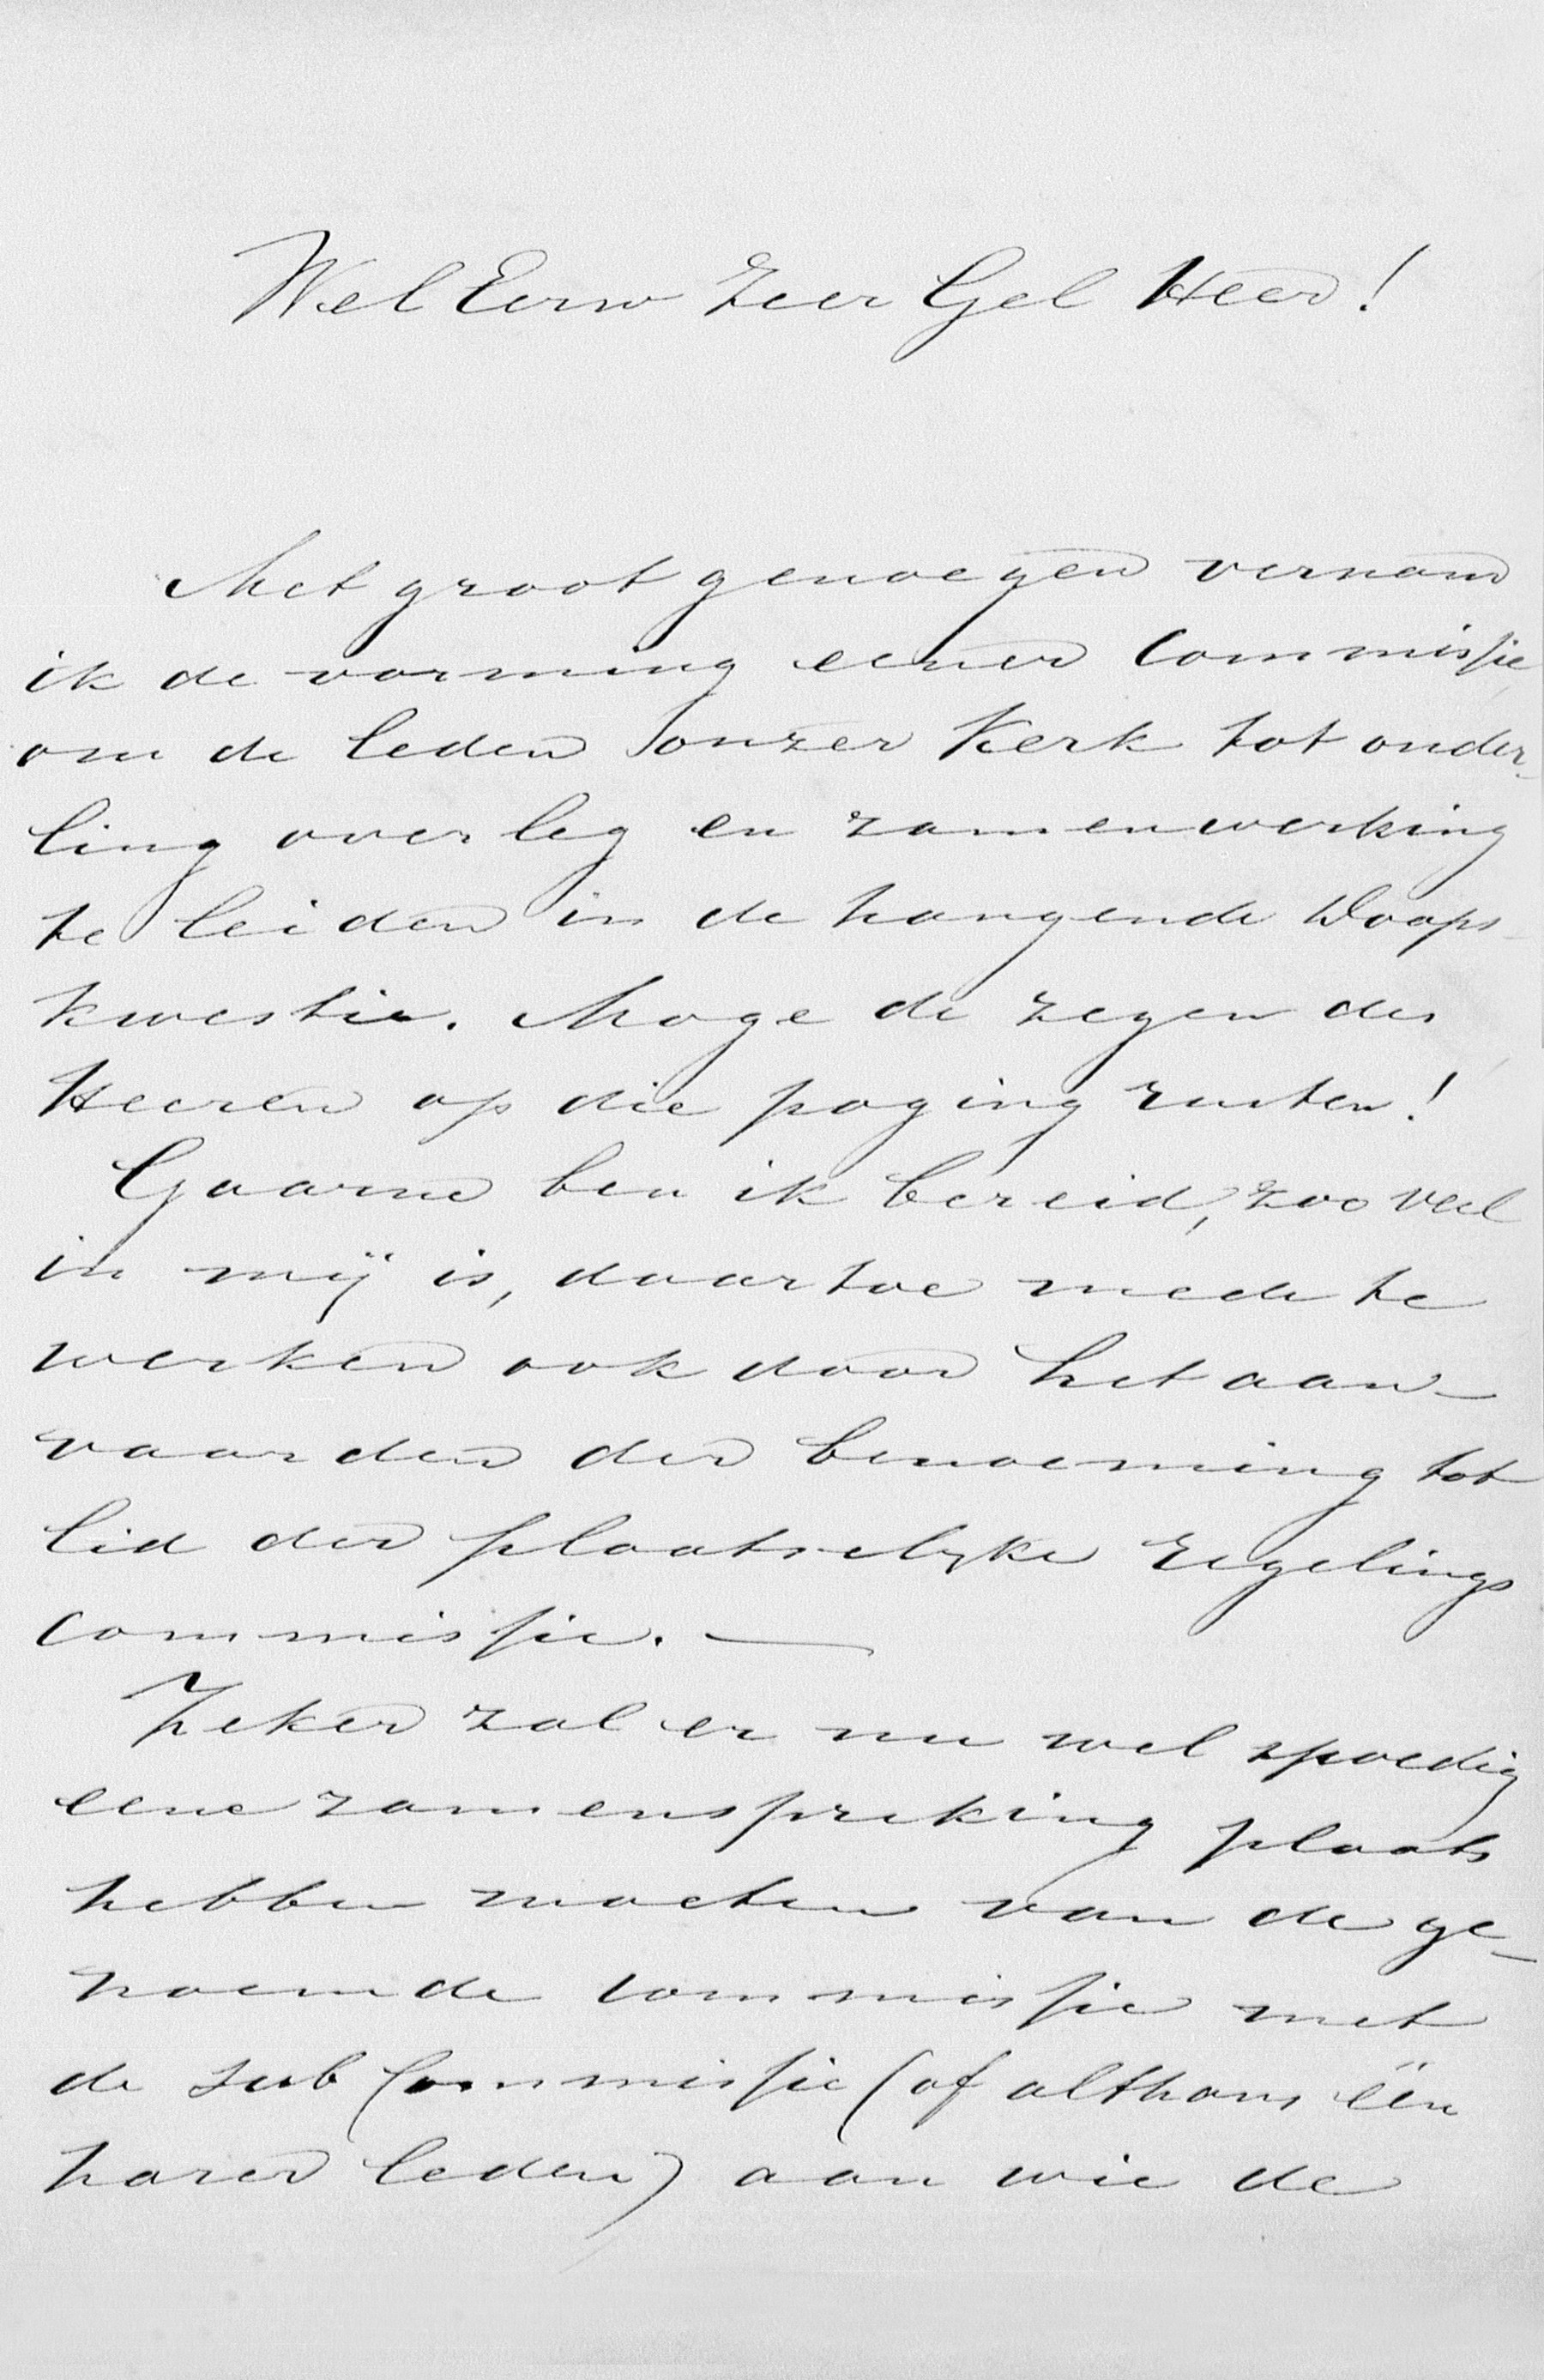 Wel Eerw Zeer Gel Heer!
Met groot genoegen vernam
ik de vorming eener Commissie
om de leden onzer Kerk tot onder-
ling overleg en zamenwerking
te leiden in de hangende Doops-
kwestie. Moge de zegen des
Heeren op die poging rusten!
Gaarne ben ik bereid, zoo veel
in mij is, daartoe mede te
werken ook door het aan-
vaarden der benoeming tot
lid der plaatselyke regelings
commissie. —
Zeker zal er nu wel spoedig
eene zamenspreking plaats
hebben moeten van de ge-
noemde commissie met
de sub Commissie (of althans één
harer leden) aan wie de